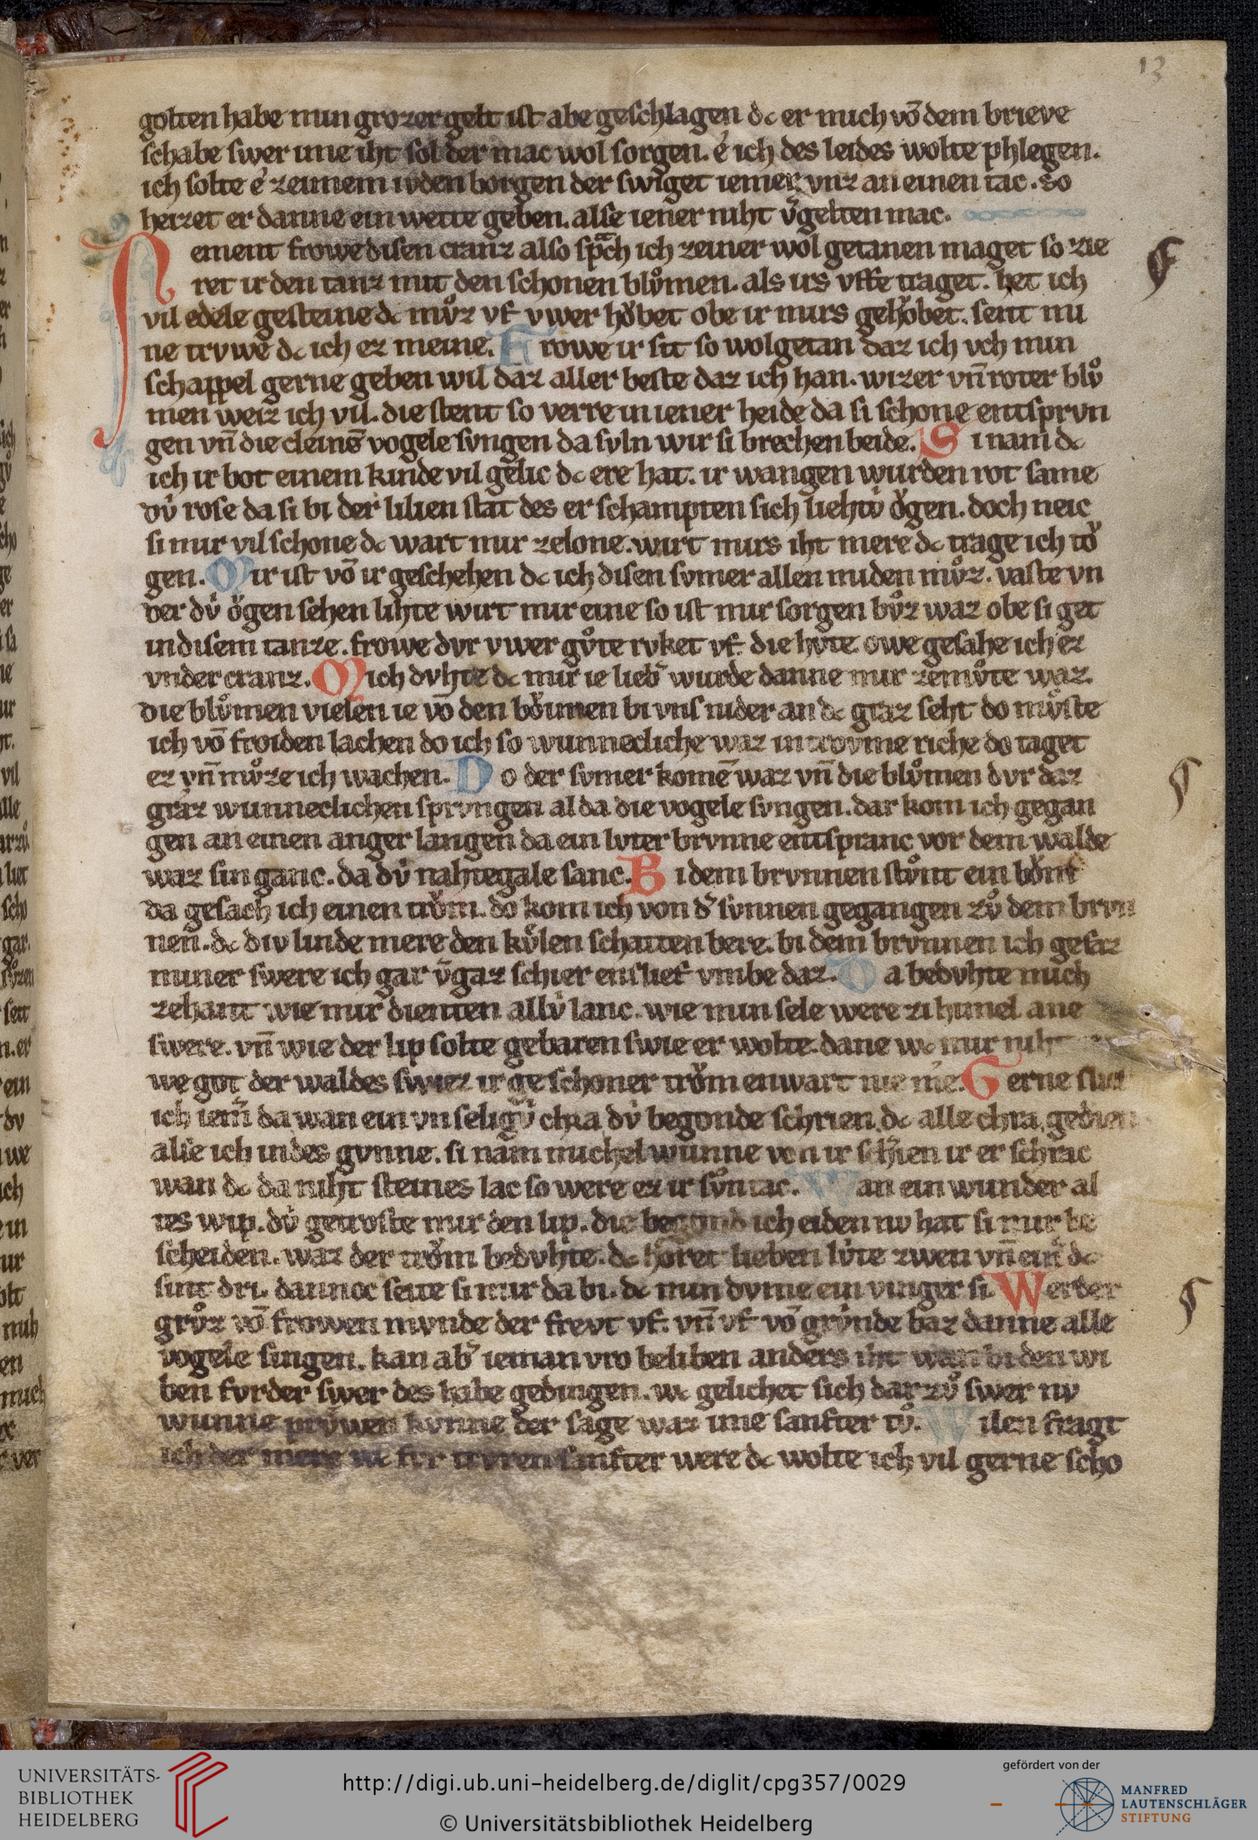 13
golten habe min grozer gelt ist abe geschlagen dc er mich vō dem brieve
schabe swer ime iht sol der mac wol sorgen. é ich des leides wolte phlegen.
ich solte é zeinem ivden borgen der swiget iemer vnz an einen tac. so
heizet er danne ein wette geben. alse iener niht v̓gelten mac.
Nement frowe disen cranz also sp͛ch ich zeiner wol getanen maget so zie
ret ir den tanz mit den schonen blůmen. als irs vffe traget. het ich
vil edele gesteine dc mův̊z vf vwer hǒbet obe ir mirs gelǒbet. sent mi
ne trvwe dc ich ez meine. Frowe ir sit so wolgetan daz ich vch min
schappel gerne geben wil daz aller beste daz ich han. wizer vn̄ roter blů
men weiz ich vil. die stent so verre in iener heide da si schone entsprvn
gen vn̄ die cleinē vogele svngen da svln wir si brechen beide. Si nam dc
ich ir bot einem kinde vil gelic dc ere hat. ir wangen wurden rot same
dv̓ rose da si bi der lilien stat des er schampten sich liehtv̓ ǒgen. doch neic
si mir vil schone dc wart mir zelone. wirt mirs iht mere dc trage ich tǒ
gen. Mir ist vō ir geschehen dc ich disen svmer allen miden mv̊z. vaste vn
der dv̓ ǒgen sehen lihte wirt mir eine so ist mir sorgen bv̊z waz obe si get
in disem tanze. frowe dvr vwer gv̊te rvket vf die hv̊te owe gesahe ich ez
vnder cranz. Mich dvhte dc mir ie lieb͛ wurde danne mir zemv̊te waz.
die blůmen vielen ie vō den bǒimen bi vns nider an dc graz seht do mv̊ste
ich vō froiden lachen do ich so wunnecliche waz in trovme riche do taget
ez vn̄ mv̊ze ich wachen. Do der svmer komē waz vn̄ die blůmen dvr daz
graz wunneclichen sprvngen al da die vogele svngen. dar kom ich gegan
gen an einen anger langen da ein lvter brvnne entspranc vor dem walde
waz sin ganc. da dv̓ nahtegale sanc. Bi dem brvnnen stv̊nt ein bǒm
da gesach ich einen trǒm. do kom ich von d͛ svnnen gegangen zv̊ dem brvn
nen. dc div linde mere den kv̊len schatten bere. bi dem brvnnen ich gesaz
miner swere ich gar v̓gaz schier entslief vmbe daz. Da bedvhte mich
zehant wie mir dienten allv̓ lant. wie min sele were zi himel ane
swere. vn̄ wie der lip solte gebaren swie er wolte. dane wc mir niht
we got der waldes swiez irge schoner trǒm enwart nie me. Gerne slief
ich iem͛ da wan ein vnseligv̓ chra dv̓ begonde schrien. dc alle chra gedien
alse ich in des gvnne. si nam michel wunne von ir schrien ir er schrac
wan dc da niht steines lac so were ez ir sv̊ntac. Wan ein wunder al
tes wip. dv̓ getroste mir den lip. die begond ich eiden nv hat si mir be
scheiden. waz der trǒm bedvhte. dc hǒret lieben lv̓te zwen vn̄ ein͛ dc
sint dri. dannoc seite si mir da bi. dc min dvme ein vinger si. Werder
grv̊z vō frowen mvnde der frevt vf. vn̄ vf vō grv̓nde baz danne alle
vogele singen. kan ab͛ ieman vro beliben anders iht wan bi den wi
ben fvrder swer des habe gedingen. wc gelichet sich dar zv̊ swer nv
wunne prv̓wen kvnne der sage waz ime sanfter tv̊. Wilen fragt
ich der mere wc fvr trvren sanfter were dc wolte ich vil gerne scho
UNIVERSITÄTS-
BIBLIOTHEK
HEIDELBERG
http://digi.ub.uni-heidelberg.de/diglit/cpg357/0029
© Universitätsbibliothek Heidelberg
gefördert von der
MANFRED
LAUTENSCHLÄGER
STIFTUNG